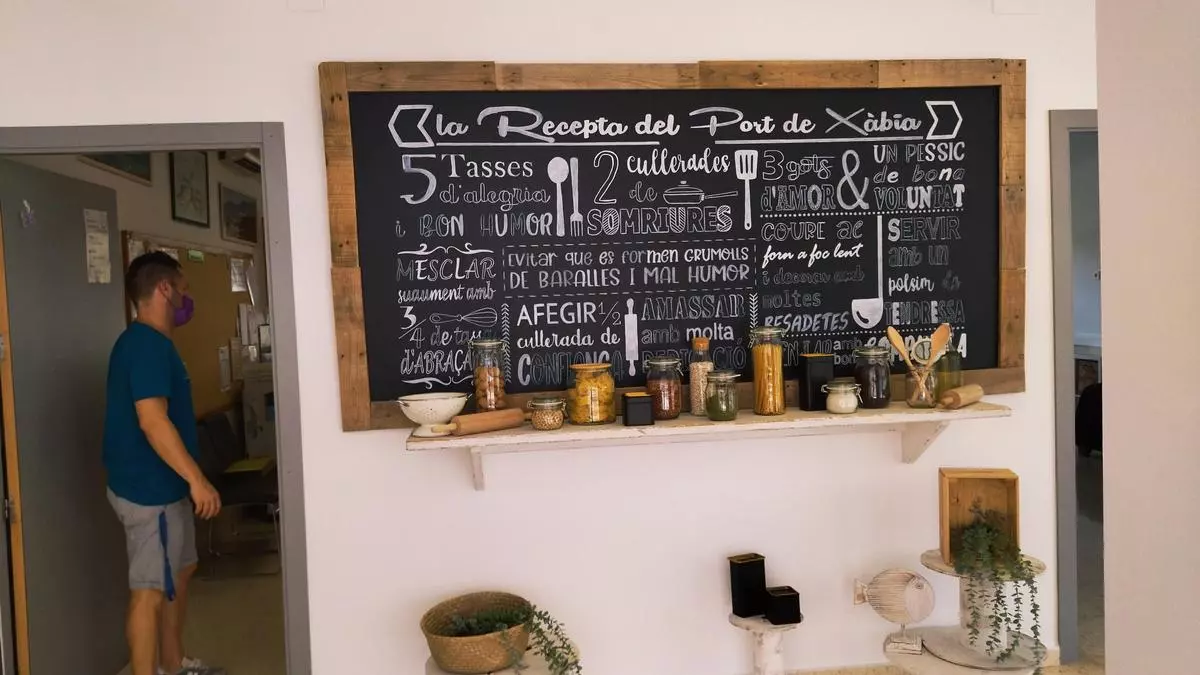 la Recepta del Port de Xàbia
5 Tasses
d'alegria
i BON HUMOR
2 cullerades
de
SOMRIURES
3 gots
d'AMOR
&
UN PESSIC
de bona
VOLUNTAT
MESCLAR
suaument amb
3/4 de tassa
d'ABRAÇA
EVITAR QUE ES FORMEN GRUMOLLS
DE BARALLES I MAL HUMOR
AFEGIR 1/2
cullerada de
CONFIANÇA
AMASSAR
amb molta
COURE AL
form a foc lent
i decorar amb
moltes
BESADETES
SERVIR
amb un
polsim de
TENDRESSA
amb